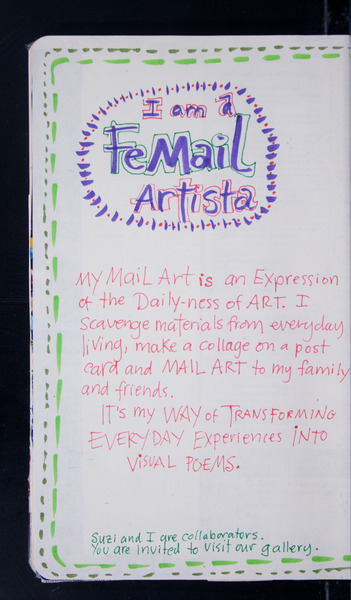 I am a
FeMail
Artista
MY MaiL Art is an Expression
of the Daily-ness of ART. I
Scavenge materials from everyday
living, make a collage on a post
card and MAIL ART to my family
and friends.
IT's my WAY of TRANSFORMING
EVERYDAY Experiences iNTO
ViSUAL POEMS.
Suzi and I are collaborators.
You are invited to visit our gallery.